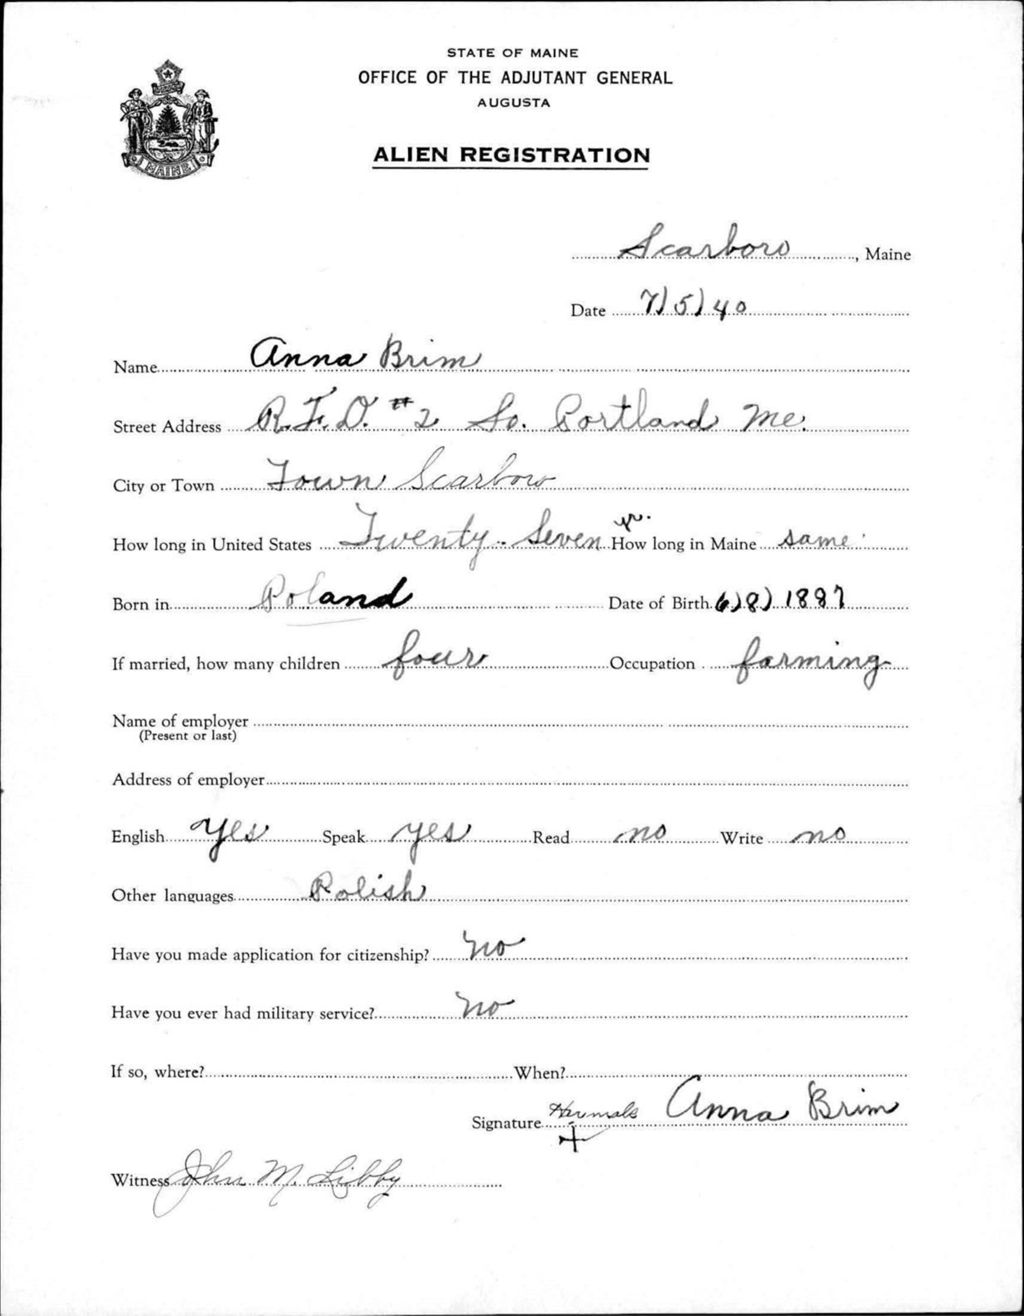 STATE OF MAINE
OFFICE OF THE ADJUTANT GENERAL
AUGUSTA
ALIEN REGISTRATION
MAINE
Scarboro, Maine
Date 7/5/40
Name Anna Brim
Street Address R.F.D. #2 So. Portland Me.
City or Town Town Scarboro
How long in United States Twenty-Seven yr. How long in Maine same
Born in Poland Date of Birth 6/8/1887
If married, how many children four Occupation farming
Name of employer
(Present or last)
Address of employer
English Yes Speak yes Read no Write no
Other languages Polish
Have you made application for citizenship? No
Have you ever had military service? No
If so, where? When?
Signature Anna Brim
X
Witness John M. Libby